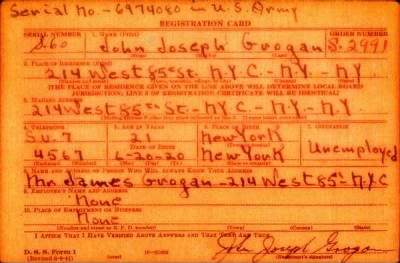 Serial No. - 6974080 in U.S. Army
REGISTRATION CARD
SERIAL NUMBER 1. NAME (Print) ORDER NUMBER
S.60 John Joseph Grogan S.2991
2. PLACE OF RESIDENCE (Print)
214 West 85th St. - N.Y.C. - N.Y. - N.Y.
[THE PLACE OF RESIDENCE GIVEN ON THE LINE ABOVE WILL DETERMINE LOCAL BOARD
JURISDICTION; LINE 2 OF REGISTRATION CERTIFICATE WILL BE IDENTICAL]
3. MAILING ADDRESS
214 West 85th St. - N.Y.C. - N.Y. - N.Y.
4. TELEPHONE 5. AGE IN YEARS 6. PLACE OF BIRTH 7. OCCUPATION
SU-7 21 New York
DATE OF BIRTH
4567 6-20-20 New York Unemployed
NAME AND ADDRESS OF PERSON WHO WILL ALWAYS KNOW YOUR ADDRESS
Mr. James Grogan - 214 West 85th - N.Y.C
9. EMPLOYER'S NAME AND ADDRESS
None
10. PLACE OF EMPLOYMENT OR BUSINESS
None
I AFFIRM THAT I HAVE VERIFIED ABOVE ANSWERS AND THAT THEY ARE TRUE.
D. S. S. Form 1
(Revised 6-9-41) John Joseph Grogan